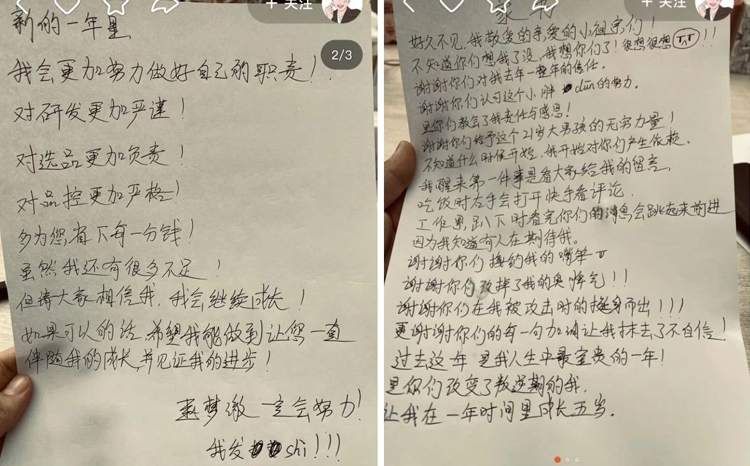 + 关注
2/3
新的一年里
我会更加努力做好自己的职责！
对研发更加严谨！
对选品更加负责！
对品控更加严格！
多为您省下每一分钱！
虽然我还有很多不足！
但请大家相信我，我会继续成长！
如果可以的话，希望我能做到让您一直
伴随我的成长，并见证我的进步！
一定会努力！
我发shi！！！
+ 关注
家书
好久不见，我敬爱的亲爱的小祖宗们！
不知道你们想我了没，我想你们了！很想很想 T.T！！
谢谢你们对我去年一整年的信任。
谢谢你们认可这个小胖dun的努力。
是你们教会了我责任与感恩！
谢谢你们给予这个21岁大男孩的无穷力量！
不知道什么时候开始，我开始对你们产生依赖
我醒来第一件事是看大家给我的留言
吃饭时左手会打开快手看评论
工作累，趴下时看完你们的消息会跳起来前进
因为我知道有人在期待我。
谢谢你们 我的嘴笨
谢谢你们改掉了我的臭脾气！！
谢谢你们在我被攻击时的挺身而出！！！
更谢谢你们的每一句加油让我抹去了不自信！
过去这一年 是我人生中最宝贵的一年！
是你们改变了叛逆期的我，
让我在一年时间里成长五岁。